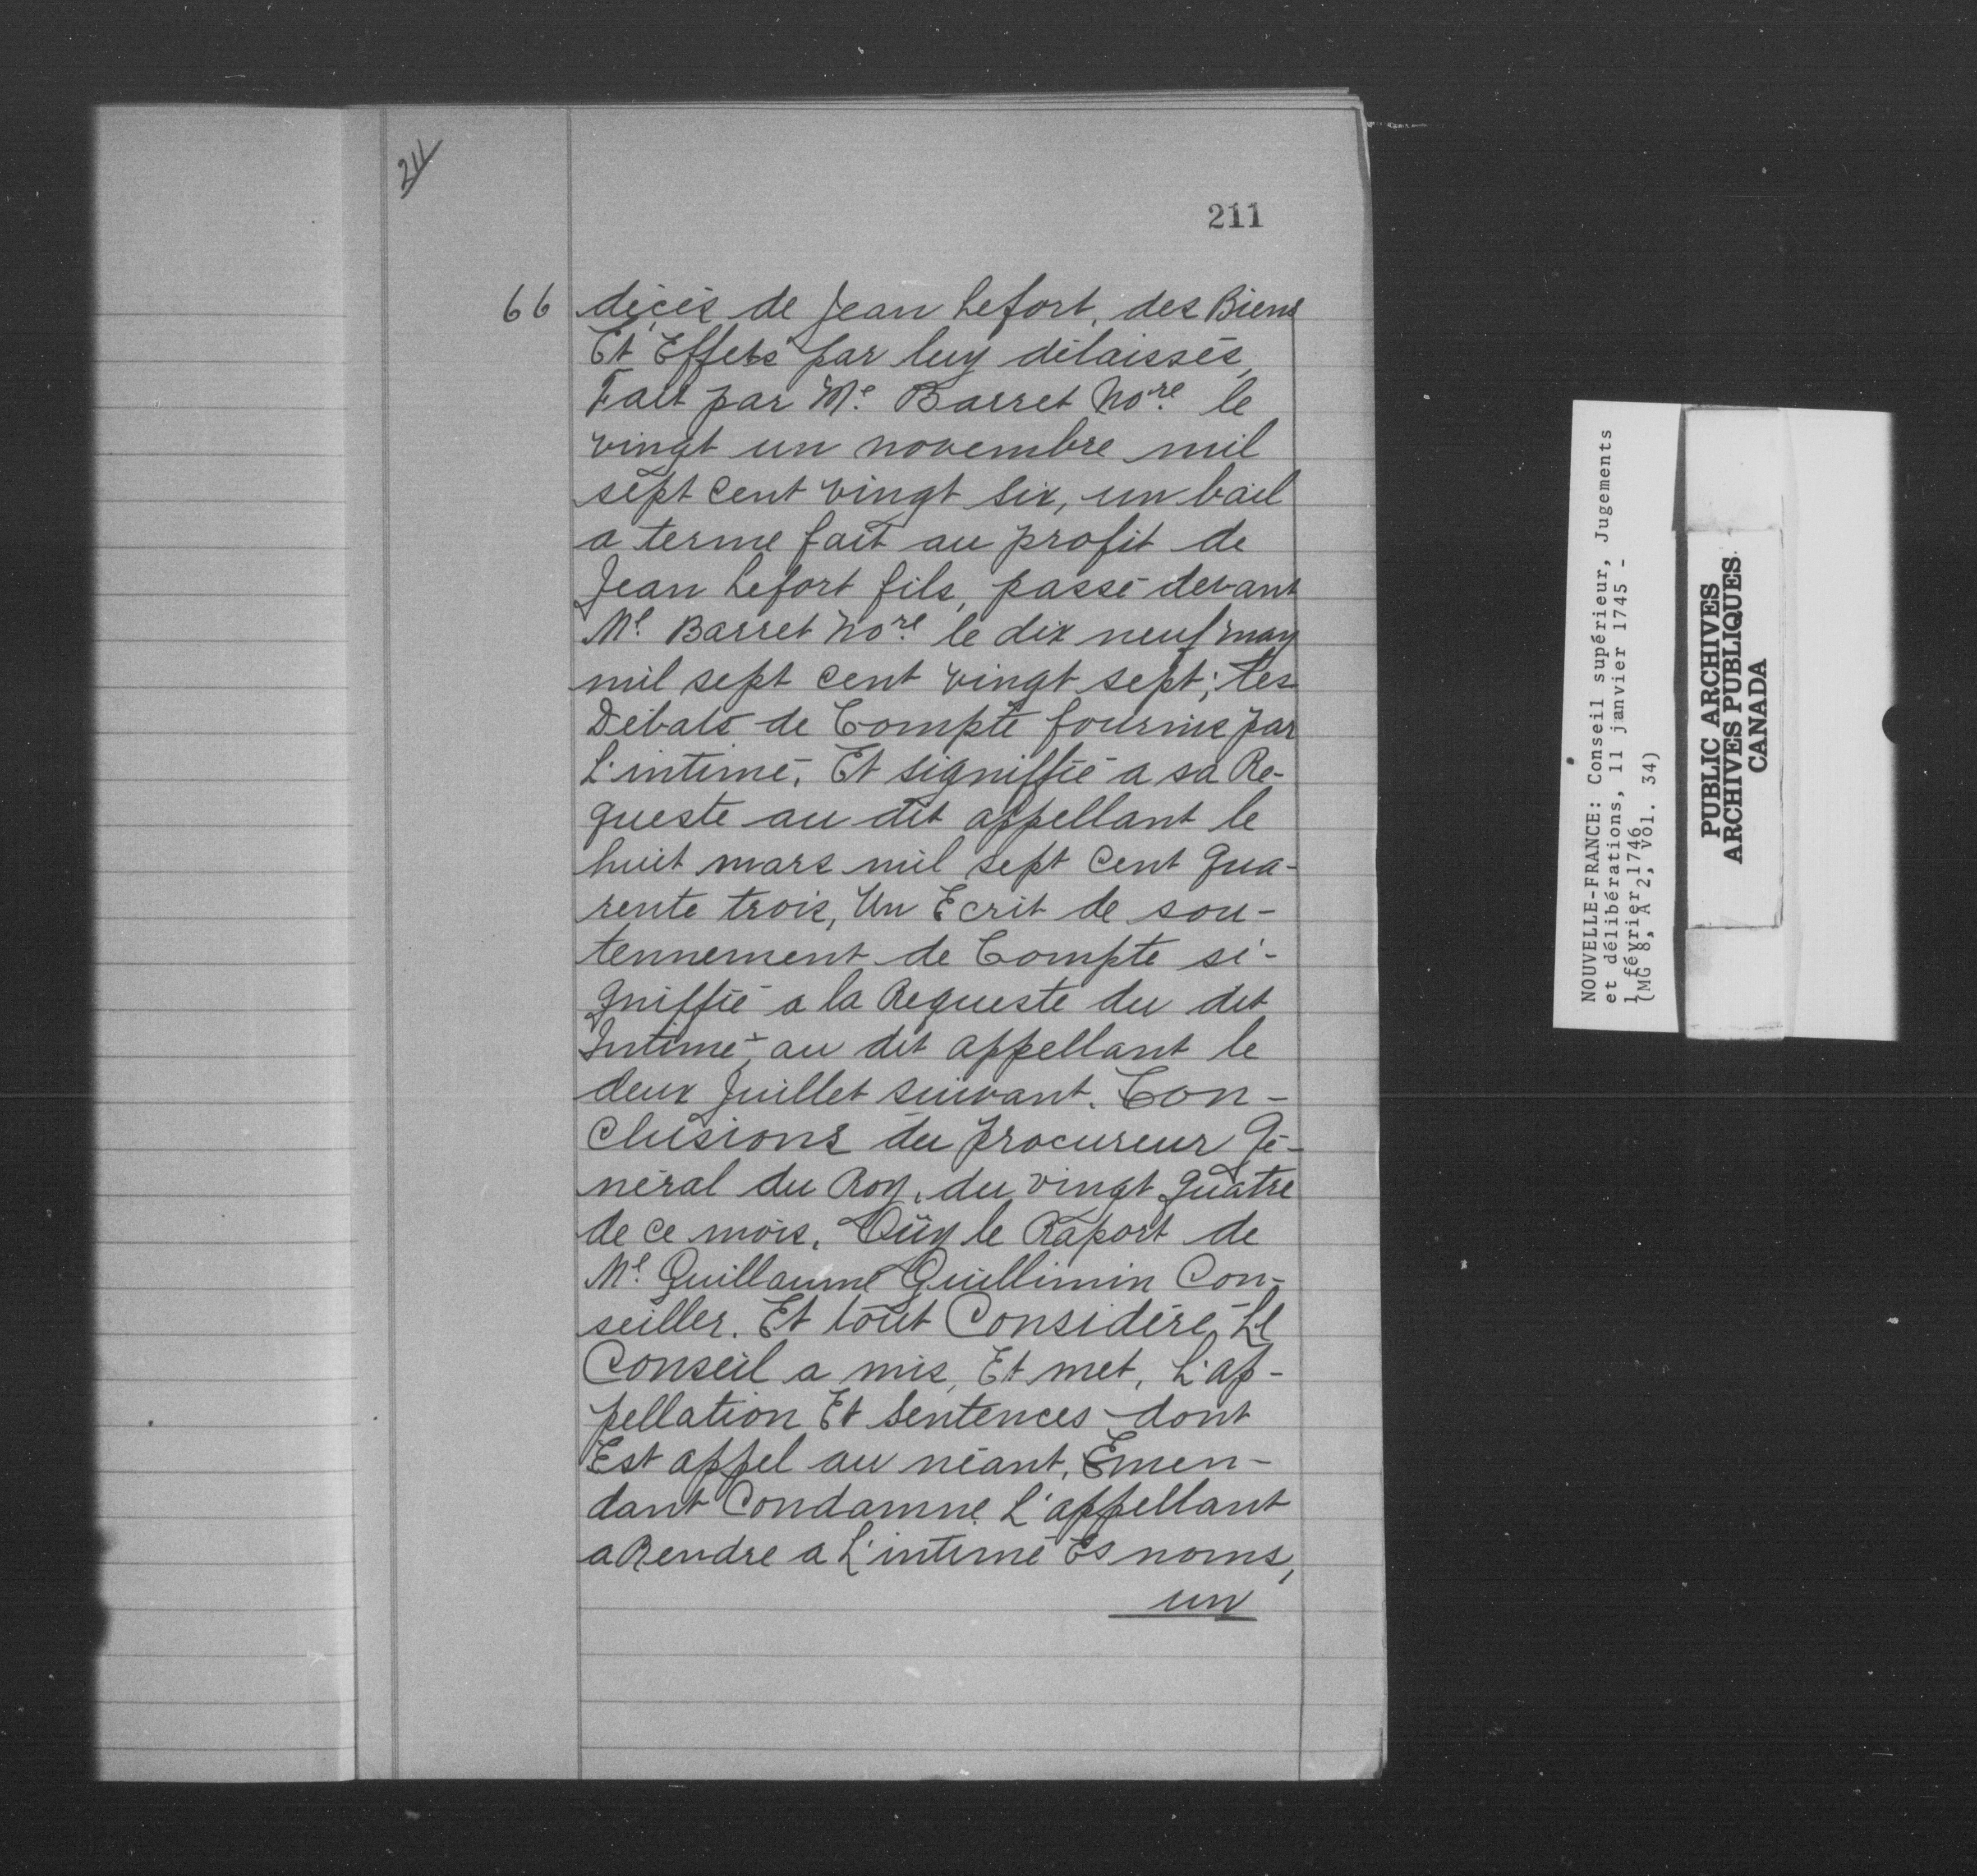 211
211
66 décès de Jean Lefort, des Biens
Et Effets par luy délaissés,
Fait par Me. Barret Nore. le
vingt un novembre mil
sept cent vingt six, un bail
a terme fait au profit de
Jean Lefort fils, passé devant
Me. Barret Nore. le dix neuf may
mil sept cent vingt sept; Les
Débats de Compte fournis par
L'intimé, Et signiffié a sa Re-
queste au dit appellant le
huit mars mil sept cent qua-
rente trois, Un Ecrit de sou-
tennement de Compte si-
gniffié a la Requeste du dit
Intimé, au dit appellant le
deux Juillet suivant. Con-
clusions du procureur Gé-
néral du Roy, du vingt quatre
de ce mois, Oüy le Raport de
Me. Guillaume Guillimin Con-
seiller. Et tout Considéré, Le
Conseil a mis, Et met, L'ap-
pellation Et Sentences dont
Est appel au néant, Emen-
dant Condamne L'appellant
a Rendre a L'intimé Es noms,
un
NOUVELLE-FRANCE: Conseil supérieur, Jugements
et délibérations, 11 janvier 1745 -
1 février 1746
(MG 8, A 2, vol. 34)
PUBLIC ARCHIVES
ARCHIVES PUBLIQUES
CANADA